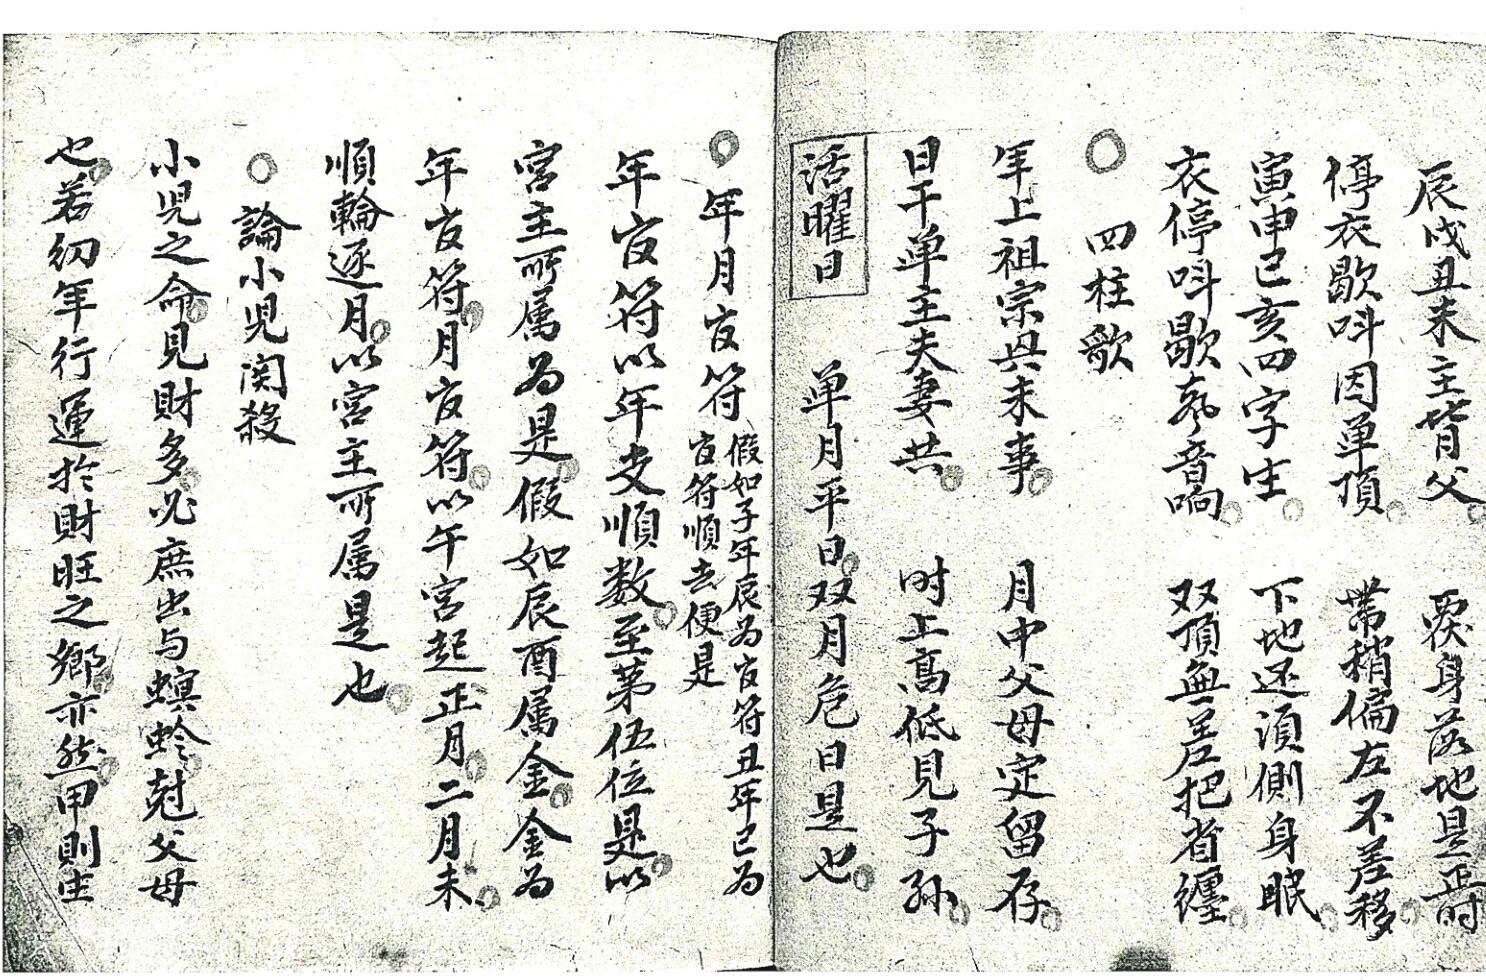 辰戌丑未主背父 覆身落地是正时
停衣歇呌因单頂 帶稍偏左不差移
寅申巳亥四字生 下地还湏側身眠
衣停呌歇氣音响 双頂無差把省纒
四柱歌
年上祖宗興未事 月中父母定留存
日干单主夫妻共 时上高低見子孙
活曜日 单月平日双月危日是也
年月官符 假如子年辰为官符丑年巳为
官符順去便是
年官符以年支順数至第伍位是以
宮主所属为是假如辰酉属金金为
年官符月官符以午宮起正月二月未
順輪逐月以宮主所属是也
論小児関殺
小児之命見財多必庶出与螟蛉尅父母
也若幼年行運於財旺之鄉亦然甲則生